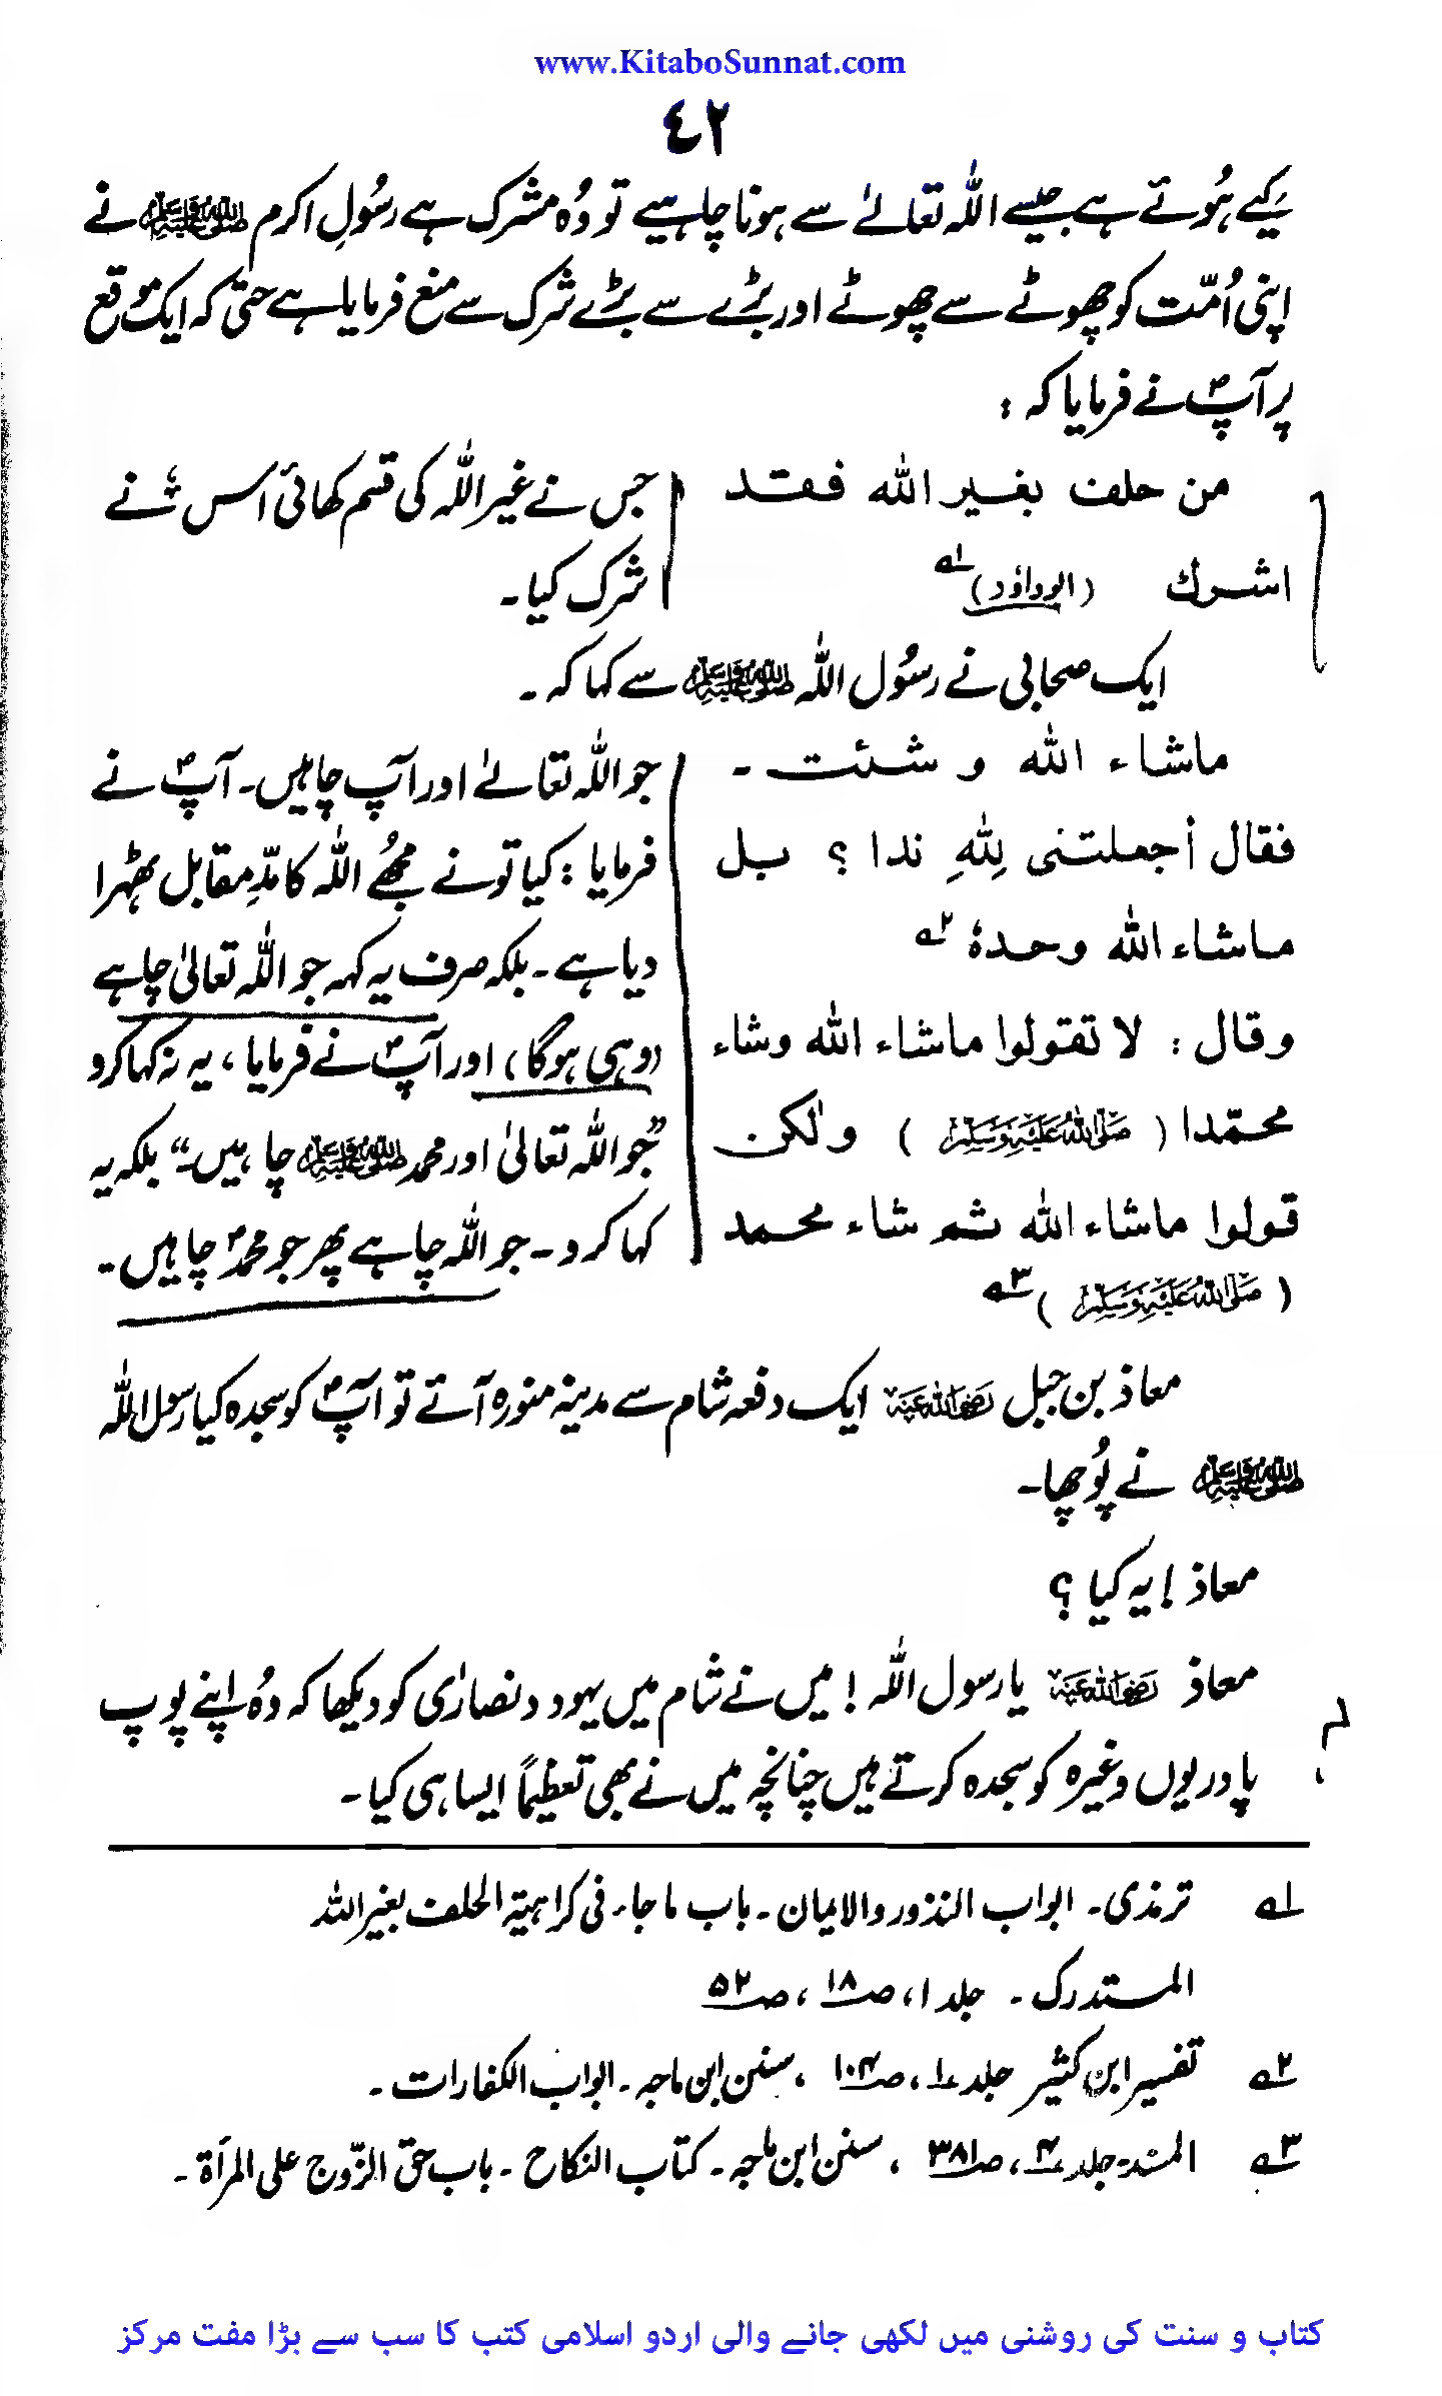 www.KitaboSunnat.com
٤٢
کیے ہُوئے ہے جیسے اللہ تعالےٰ سے ہونا چاہیے تو وُہ مشرک ہے رسُولِ اکرم ﷺ نے
اپنی اُمّت کو چھوٹے سے چھوٹے اور بڑے سے بڑے شرک سے منع فرمایا ہے حتیٰ کہ ایک موقع
پر آپؐ نے فرمایا کہ :
من حلف بغیر اللہ فقد
اشرك (ابوداؤد) ۱ھ
جس نے غیر اللہ کی قسم کھائی اس نے
شرک کیا۔
ایک صحابی نے رسُول اللہ ﷺ سے کہا کہ۔
ماشاء اللہ و شئت ۔
فقال أجعلتنی لِلّٰهِ ندا ؟ بل
ماشاء اللہ وحدہٗ ۲ھ
وقال : لا تقولوا ماشاء اللہ وشاء
محمّدا ( ﷺ ) ولٰکن
قولوا ماشاء اللہ ثم شاء محمد
( ﷺ ) ۳ھ
جو اللہ تعالےٰ اور آپ چاہیں۔ آپؐ نے
فرمایا : کیا تو نے مجھُے اللہ کا مدِّ مقابل ٹھہرا
دیا ہے۔ بلکہ صرف یہ کہہ جو اللہ تعالیٰ چاہے
(وہی ہوگا) اور آپؐ نے فرمایا ، یہ نہ کہا کرو
”جو اللہ تعالیٰ اور محمد ﷺ چاہیں۔“ بلکہ یہ
کہا کرو۔ جو اللہ چاہے پھر جو محمدؐ چاہیں۔
معاذ بن جبل رضی اللہ عنہ ایک دفعہ شام سے مدینہ منورہ آئے تو آپؐ کو سجدہ کیا رسول اللہ
ﷺ نے پُوچھا۔
معاذ ! یہ کیا ؟
معاذ رضی اللہ عنہ یا رسول اللہ ! میں نے شام میں یہود و نصارٰی کو دیکھا کہ وُہ اپنے پوپ
پادریوں وغیرہ کو سجدہ کرتے ہیں چنانچہ میں نے بھی تعظیماً ایسا ہی کیا۔
۱ھ ترمذی۔ ابواب النذور والایمان۔ باب ما جاء فی کراہیۃ الحلف بغیر اللہ
المستدرک۔ جلد ۱، صـ۱۸ ، صـ۵۲
۲ھ تفسیر ابن کثیر جلد ۱ ، صـ۱۰۴ ، سنن ابن ماجہ۔ ابواب الکفارات۔
۳ھ المسند۔ جلد ۴ ، صـ۳۸۱ ، سنن ابن ماجہ۔ کتاب النکاح ۔ باب حق الزّوج علی المرأۃ ۔
کتاب و سنت کی روشنی میں لکھی جانے والی اردو اسلامی کتب کا سب سے بڑا مفت مرکز